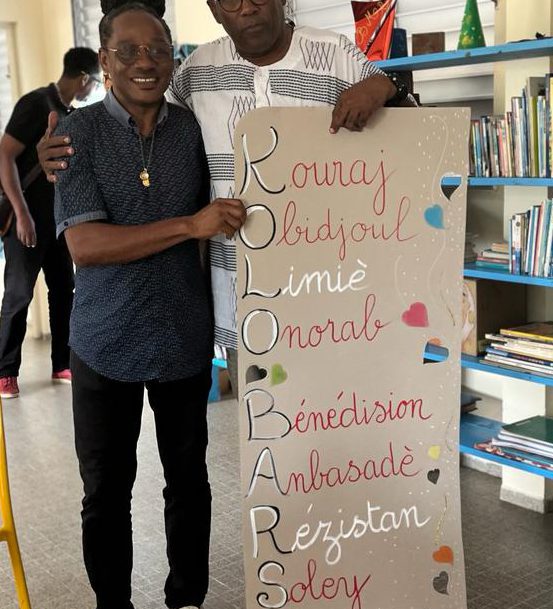 Kouraj
Obidjoul
Limiè
Onorab
Bénédision
Anbasadè
Rézistan
Soley